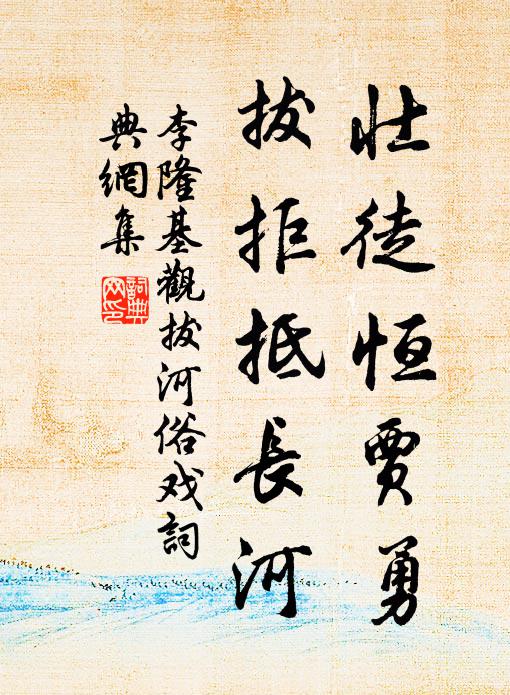 壮徒恒賈勇
拔拒抵長河
李隆基觀拔河俗戏詞
典網集
詞典网印